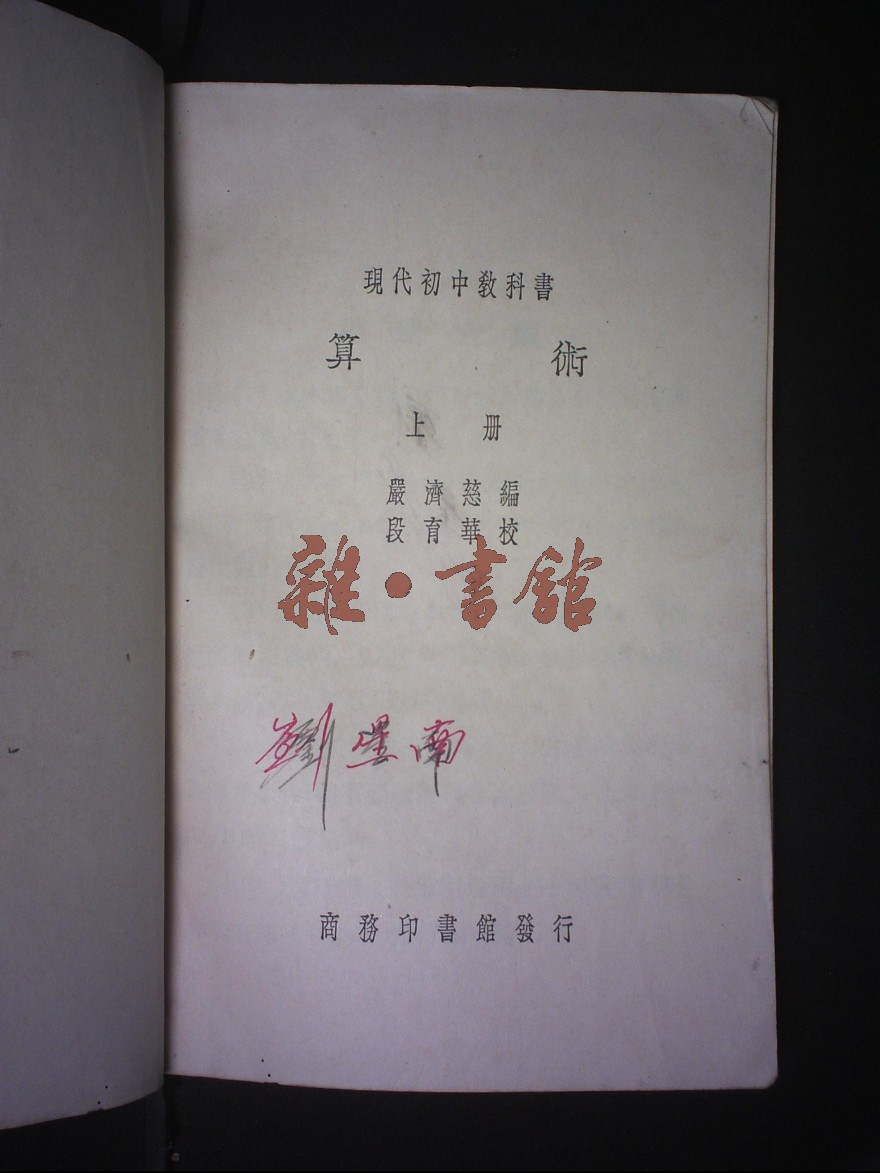 現代初中教科書
算術
上冊
嚴濟慈編
段育華校
雜·書館
劉墨南
商務印書館發行